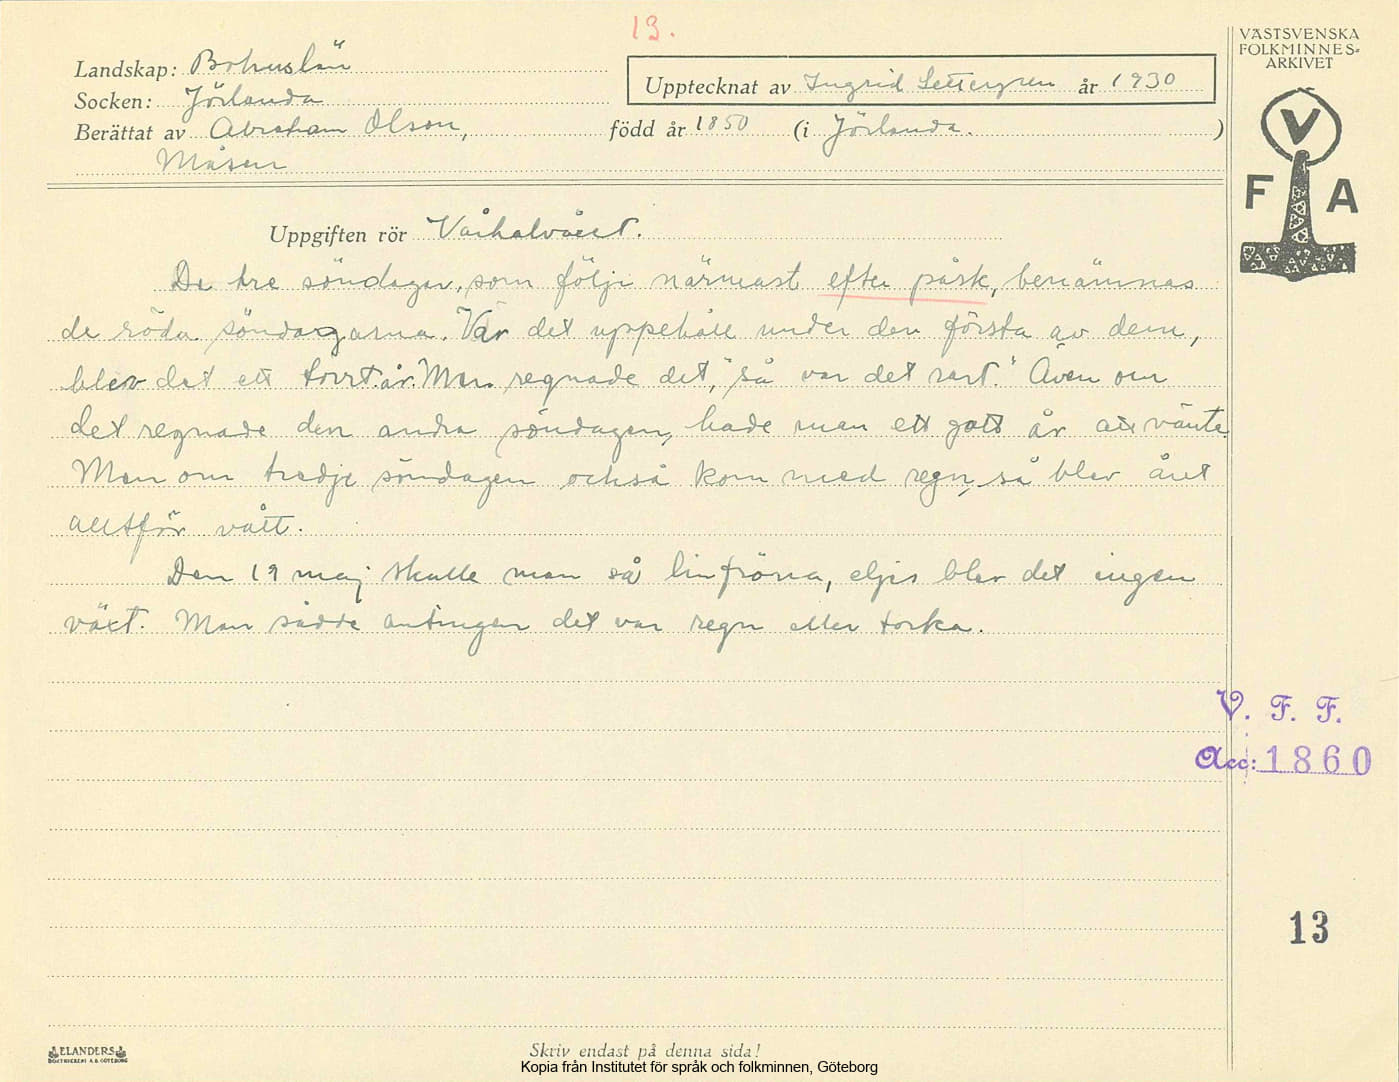 13.
VÄSTSVENSKA
FOLKMINNES-
ARKIVET
Landskap: Bohuslän
Upptecknat av Ingrid Settergren år 1930
Socken: Jörlanda
Berättat av Abraham Olson, född år 1850 (i Jörlanda. )
Måsen
V
F A
Uppgiften rör Vårhalvåret.
De tre söndagar, som följa närmast efter påsk, benämnas
de röda söndagarna. Var det uppehåll under den första av dem,
blev det ett torrt år. Men regnade det, "så var det rart." Även om
det regnade den andra söndagen, hade man ett gott år att vänta.
Men om tredje söndagen också kom med regn, så blev året
alltför vått.
Den 19 maj skulle man så linfröna, eljes blev det ingen
växt. Man sådde antingen det var regn eller torka.
V. F. F.
Acc: 1860
13
ELANDERS
BOKTRYCKERI A.B. GÖTEBORG
Skriv endast på denna sida!
Kopia från Institutet för språk och folkminnen, Göteborg